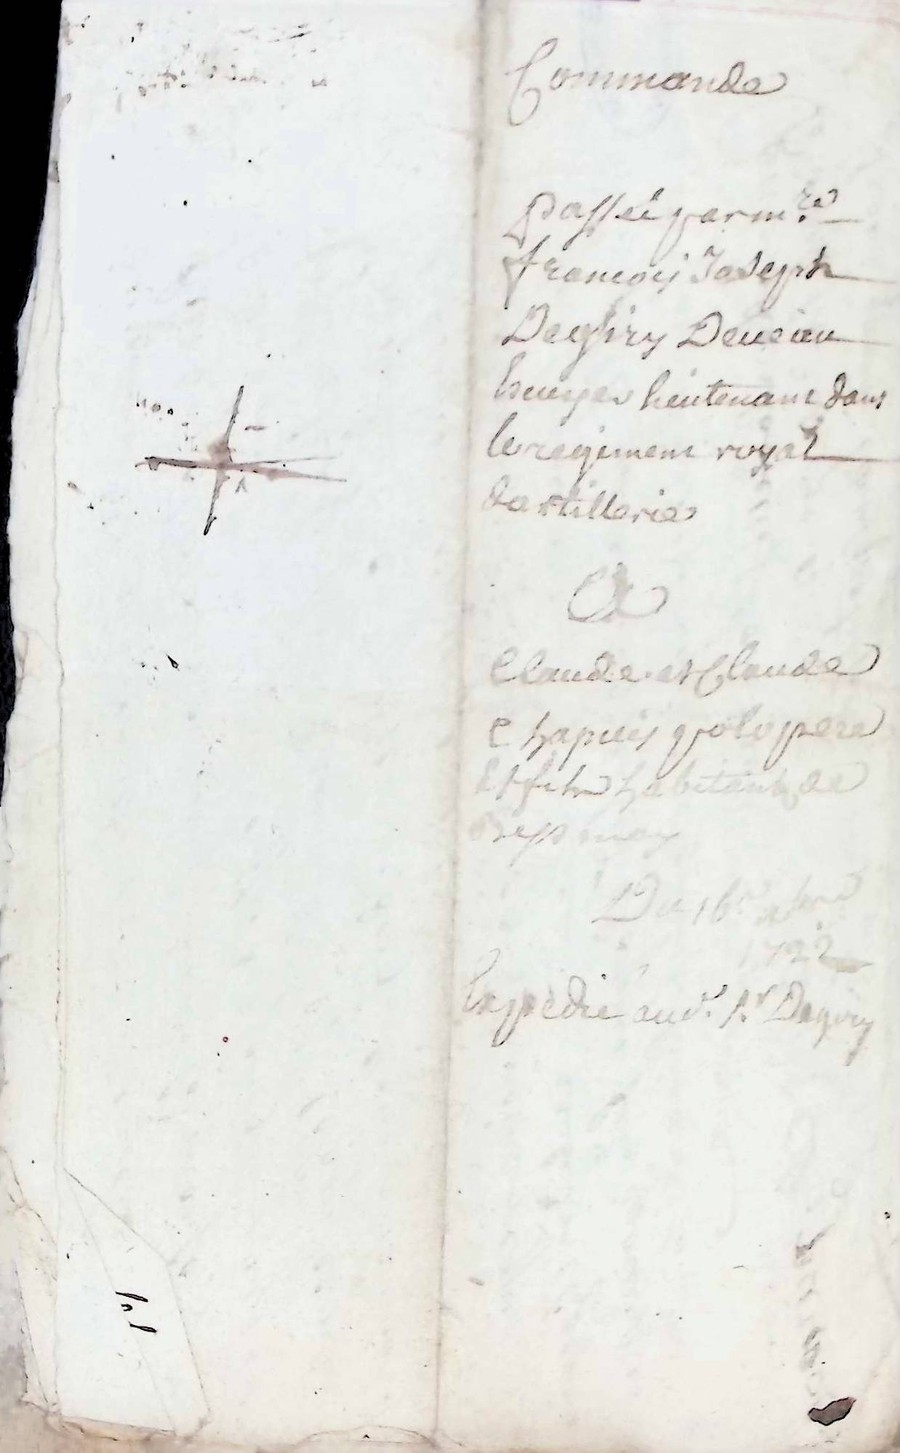 Commande
Passeé par m.re
francois Joseph
Degliry Deueau
Ecuyer lieutenant dans
le regiment royal
dartillerie
Et
Claude et Claude
Chapuis pere
Et fils habitants de
Du 16e
1722
Expedié aud. Sr